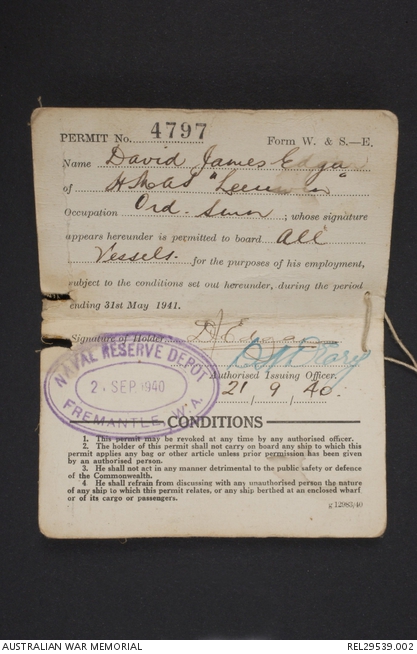 PERMIT No. 4797 Form W. & S.—E.
Name David James Edgar
of HMAS "Leeuwin"
Occupation Ord. Smn ; whose signature
appears hereunder is permitted to board All
Vessels. for the purposes of his employment,
subject to the conditions set out hereunder, during the period
ending 31st May 1941.
Signature of Holder
Authorised Issuing Officer.
21 / 9 / 40.
NAVAL RESERVE DEPOT
2 SEP 1940
FREMANTLE, W.A.
CONDITIONS
1. This permit may be revoked at any time by any authorised officer.
2. The holder of this permit shall not carry on board any ship to which this
permit applies any bag or other article unless prior permission has been given
by an authorised person.
3. He shall not act in any manner detrimental to the public safety or defence
of the Commonwealth.
4 He shall refrain from discussing with any unauthorised person the nature
of any ship to which this permit relates, or any ship berthed at an enclosed wharf
or of its cargo or passengers.
g.12983/40
AUSTRALIAN WAR MEMORIAL REL29539.002